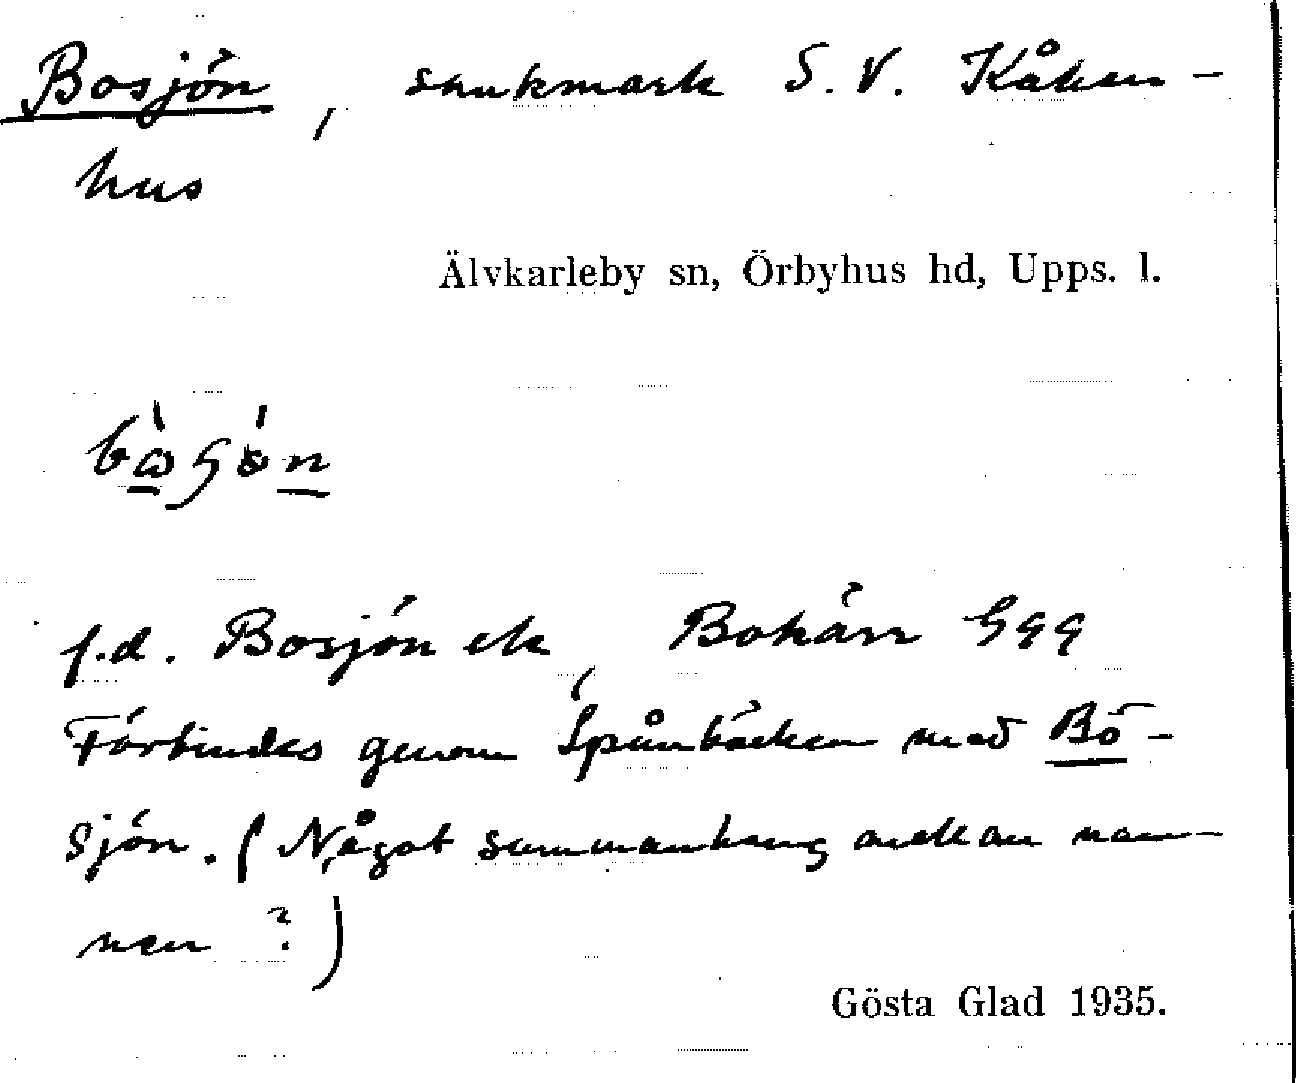 Bosjön, sankmark S.V. Kåken-
hus
Älvkarleby sn, Örbyhus hd, Upps. l.
f.d. Bosjön ek, Bokärr Ggq
Förbindes genom Spånbäcken med Bö-
sjön. (Något sammanhang mellan nam-
nen ?)
Gösta Glad 1935.